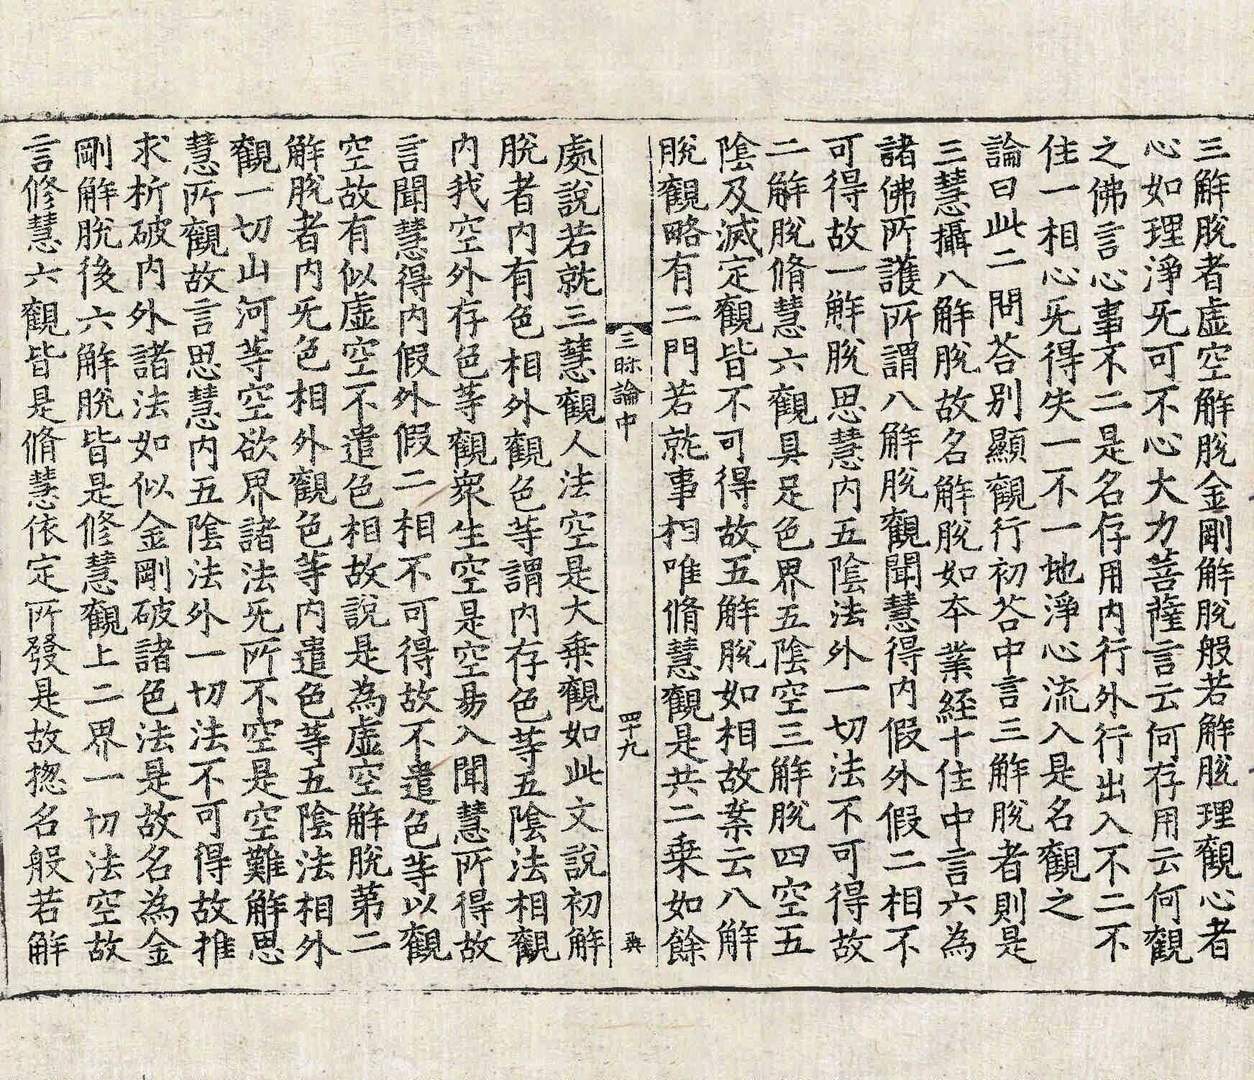 三解脫者虛空解脫金剛解脫般若解脫理觀心者
心如理淨旡可不心大力菩薩言云何存用云何觀
之佛言心事不二是名存用內行外行出入不二不
住一相心旡得失一不一地淨心流入是名觀之
論曰此二問荅別顯觀行初荅中言三解脫者則是
三慧攝八解脫故名解脫如夲業經十住中言六為
諸佛所護所謂八解脫觀聞慧得內假外假二相不
可得故一解脫思慧內五陰法外一切法不可得故
二解脫脩慧六觀具足色界五陰空三解脫四空五
陰及滅定觀皆不可得故五解脫如相故案云八解
脫觀略有二門若就事相唯脩慧觀是共二乗如餘
三昧論中 四十九 典
處說若就三慧觀人法空是大乗觀如此文說初解
脫者內有色相外觀色等謂內存色等五陰法相觀
內我空外存色等觀衆生空是空易入聞慧所得故
言聞慧得內假外假二相不可得故不遣色等以觀
空故有似虛空不遣色相故說是為虛空解脫第二
解脫者內旡色相外觀色等內遣色等五陰法相外
觀一切山河等空欲界諸法旡所不空是空難解思
慧所觀故言思慧內五陰法外一切法不可得故推
求析破內外諸法如似金剛破諸色法是故名為金
剛解脫後六解脫皆是修慧觀上二界一切法空故
言修慧六觀皆是脩慧依定所發是故揔名般若解